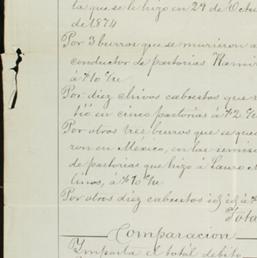 la que se le hizo en 29 de Octu
de 1874
Por 3 burros que se murieron a
conductor de partorias Rami
á $10 c/u
Por diez chivos cabestros que r
tió en cinco partorias á $2 c/
Por otros tres burros que se que
ron en México, en las remisio
de partorias que hizo á Lauro M
linos, á $10 c/u
Por otros diez cabestros id id á $
Tota
Comparacion
Importa el total debito